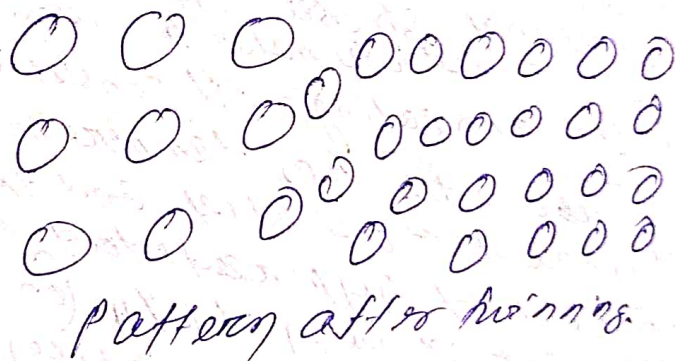 Pattern after twinning.